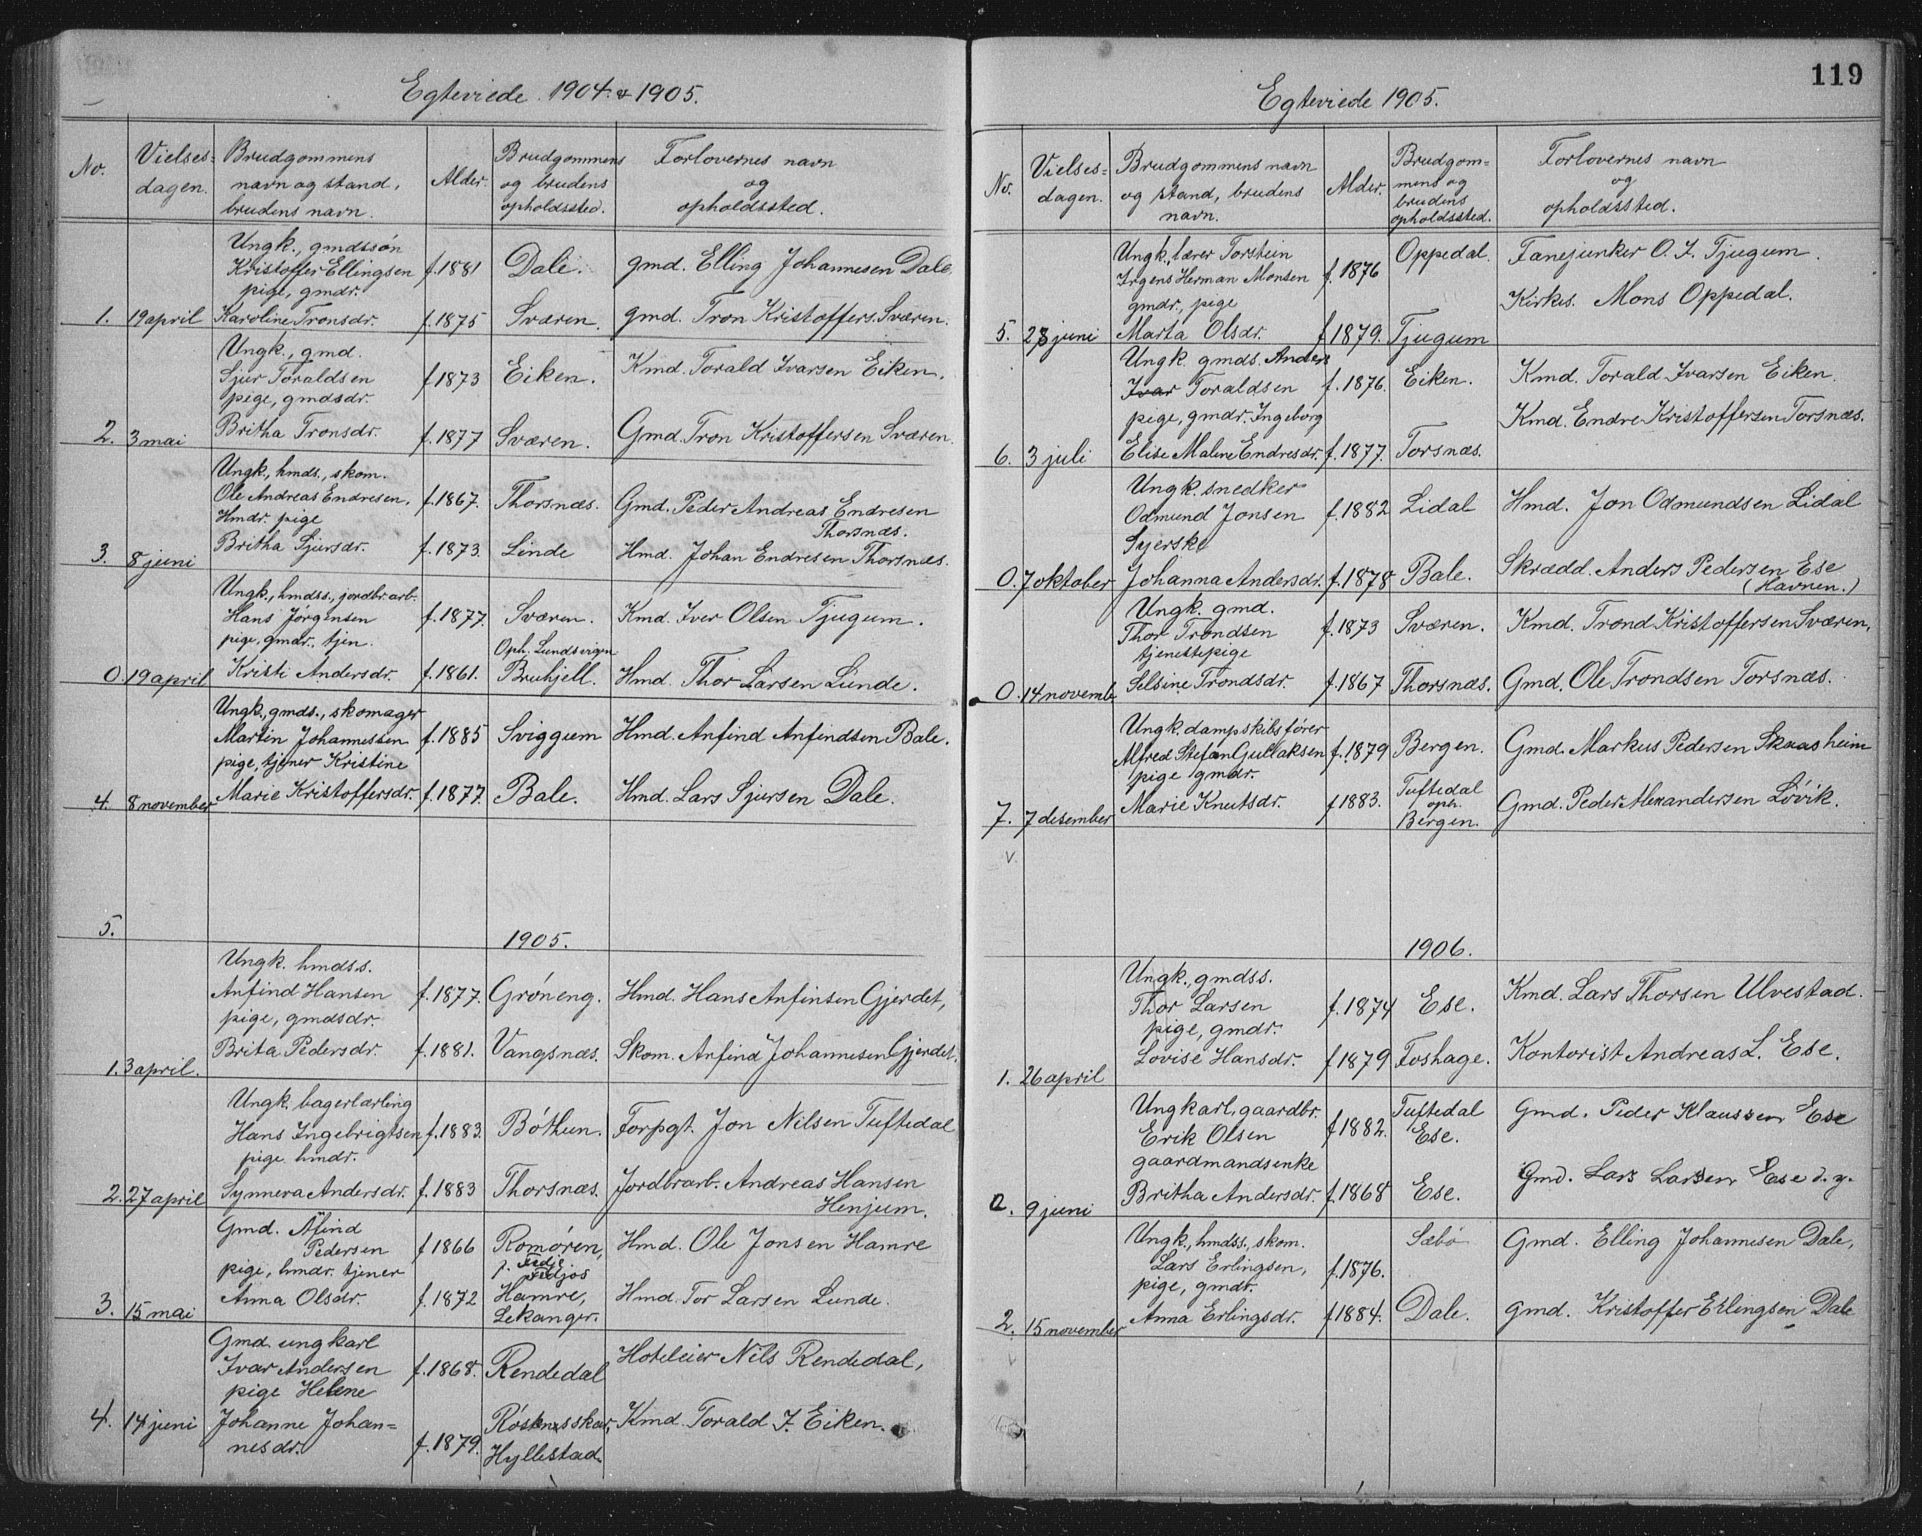 Egteviede 1904 & 1905.
No.
Vielses-
dagen.
Brudgommens
navn og stand,
brudens navn.
Alder.
Brudgommens
og brudens
opholdssted.
Forlovernes navn
og
opholdssted.
Ungk., gmdssøn
Kristoffer Ellingsen f. 1881 Dale. gmd. Elling Johannesen Dale.
pige, gmdr.
1. 19 april Karoline Tronsdr. f. 1875 Sværen. gmd. Tron Kristoffers. Sværen.
Ungk., gmd.
Sjur Toraldsen f. 1873 Eiken. Kmd. Torald Ivarsen Eiken.
pige, gmdsdr.
2. 3 mai Britha Tronsdr. f. 1877 Sværen. Gmd. Tron Kristoffersen Sværen.
Ungk., hmds., skom.
Ole Andreas Endresen, f. 1867. Thorsnæs. Gmd. Peder Andreas Endresen
Hmdr. pige Thorsnæs.
3. 8 juni Britha Sjursdr. f. 1873. Linde Hmd. Johan Endresen Thorsnæs.
Ungk., hmdss., jordbr. arb.
Hans Jørgensen f. 1877. Sværen. Kmd. Iver Olsen Tjugum.
pige, gmdr., tjen. Oph. Lundsvigen
0. 19 april Kristi Andersdr. f. 1861. Bruhjell. Hmd. Thor Larsen Lunde.
Ungk., gmds., skomager
Martin Johannessen f. 1885 Sviggum Hmd. Anfind Anfindsen Bale.
pige, tjener Kristine
4. 8 november Marie Kristoffersdr. f. 1877. Bale. Hmd. Lars Sjursen Dale.
5.
1905.
Ungk. hmdss.
Anfind Hansen f. 1877. Grøneng. Hmd. Hans Anfinsen Gjerdet,
pige, gmdsdr.
1. 3 april. Brita Pedersdr. f. 1881. Vangsnæs. Skom. Anfind Johannesen Gjerdet.
Ungk. bagerlærling
Hans Ingebrigtsen f. 1883. Bøthun. Forpgt. Jon Nilsen Tuftedal
pige hmdr.
2. 27 april Synneva Andersdr. f. 1883 Thorsnæs. Jordbrarb. Andreas Hansen
Henjum.
Gmd. Afind
Pedersen f 1866 Romøren, Hmd. Ole Jonsen Hamre
pige, hmdr. tjener p. Fedje
Fedjos
3. 15 mai Anna Olsdr. f. 1872 Hamre, Hmd. Tor Larsen Lunde.
Lekanger.
Gmd. ungkarl
Ivar Andersen f. 1868. Rendedal Hoteleier Nils Rendedal,
pige Helene
4. 14 juni Johanne Johan- Kmd. Torald I. Eiken.
nesdr. f. 1879. Hyllestad.
119
Egteviede 1905.
No.
Vielses-
dagen.
Brudgommens navn
og stand, brudens
navn.
Alder.
Brudgom-
mens og
brudens
opholdssted.
Forlovernes navn
og
opholdssted.
Ungk., lærer Torstein Oppedal. Fanejunker O. I. Tjugum.
Irgens Herman Monsen f. 1876
gmdr., pige Kirkes. Mons Oppedal.
5. 23 juni Marta Olsdr. f 1879. Tjugum
Ungk. gmds. Anders
Ivar Toraldsen f. 1876. Eiken. Kmd. Torald Ivarsen Eiken.
pige, gmdr. Ingeborg Kmd. Endre Kristoffersen Torsnæs.
6. 3 juli Elise Malene Endresdr. f. 1877. Torsnæs.
Ungk. snedker
Odmund Jonsen f. 1882 Lidal Hmd. Jon Odmundsen Lidal
Syerske
0. 7 oktober Johanna Andersdr. f. 1878 Bale. Skrædd. Anders Pedersen Ese
(Havnen.)
Ungk. gmd.
Thor Trondsen f. 1873 Sværen. Kmd. Trond Kristoffersen Sværen,
tjenestepige
0. 14 novemb. Selsine Trondsdr. f. 1867 Thorsnæs. Gmd. Ole Trondsen Torsnæs.
Ungk. dampskibsfører
Alfred Stefan Gullaksen f. 1879 Bergen. Gmd. Markus Pedersen Skaasheim
pige gmdr.
7. 7 desember Marie Knutsdr. f 1883. Tuftedal Gmd. Peder Alexandersen Løvik.
oph.
Bergen.
v.
1906.
Ungk., gmdss.
Thor Larsen f. 1874 Ese. Kmd. Lars Thorsen Ulvestad.
pige, gmdr.
1. 26 april Lovise Hansdr. f 1879 Foshage. Kontorist Andreas L. Ese.
Ungkarl, gaardbr. Tuftedal Gmd. Peder Klaussen Ese
Erik Olsen f 1882. Ese.
gaardmandsenke
0. 9 juni Britha Andersdr. f. 1868 Ese. Gmd. Lars Larsen Ese d. y.
Ungk., hmdss., skom. Sæbø Gmd. Elling Johannesen Dale,
Lars Erlingsen, f. 1876.
pige, gmdr.
2. 15 november Anna Erlingsdr. f 1884. Dale. gmd. Kristoffer Erlingsen Dale
v